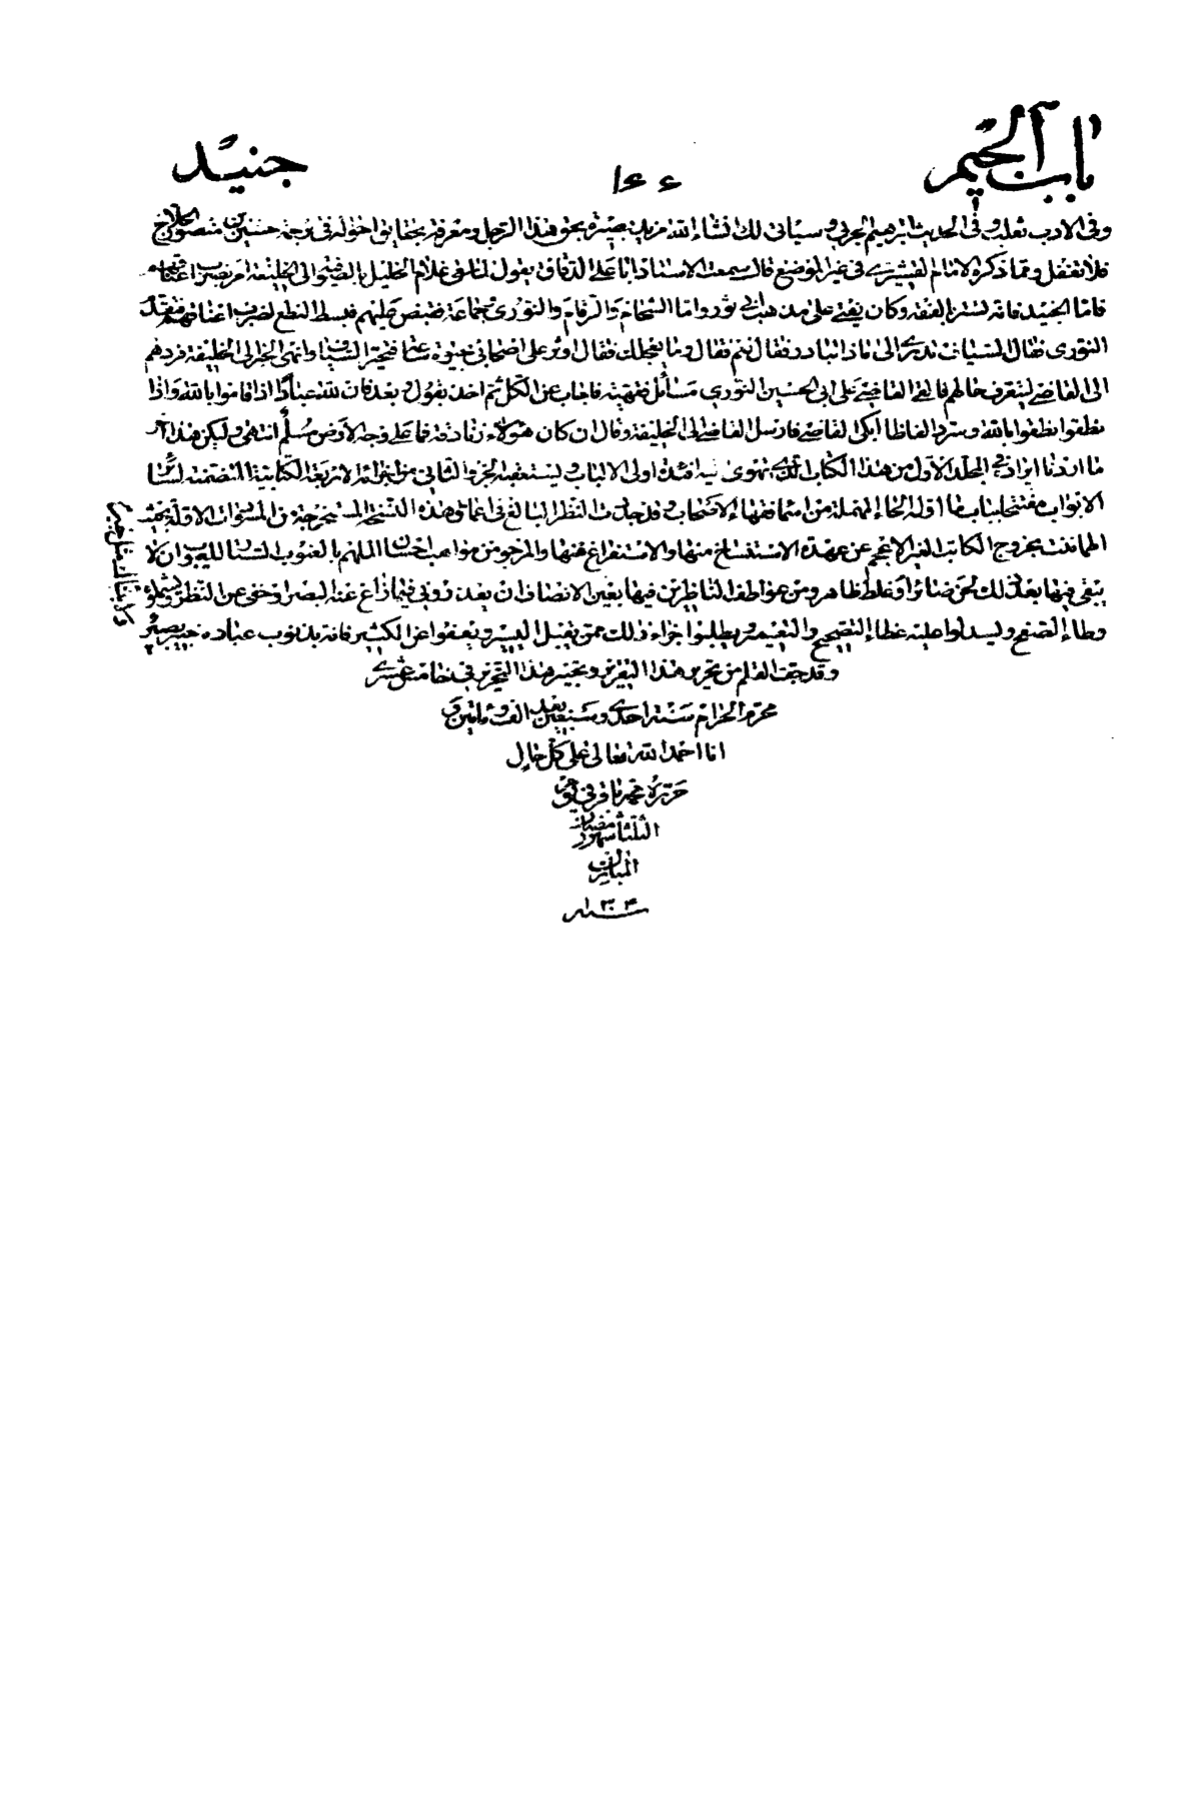 باب الجيم
١٤٤
جنيد
وفى الادب ثعلب وفى الحديث ابرهيم الحربى وسياتى لك انشاء الله مزيد بصيرة بحق هذا الرجل ومعرفة بحقايق احواله فى ترجمة حسين بن منصور الحلاج
فلا تغفل ومما ذكره الامام القشيرى فى غير الموضع قال سمعت الاستاد ابا على الدقاق يقول لما غلام الخليل بالصوفية الى الخليفة امر بضرب اعناقهم
فاما الجنيد فانه تستر بالفقه وكان يفتى على مذهب ابى ثور واما الشحام والرقام والنورى وجماعة فقبض عليهم فبسط النطع لضرب اعناقهم فتقدم
النورى فقال السياف تدرى الى ماذا تبادر فقال نعم فقال وما يعجلك فقال اوثر على اصحابى حيوة ساعة فتحير السياف وانهى الخبر الى الخليفة فردهم
الى القاضى ليتعرف حالهم فالقى القاضى على ابى الحسين النورى مسائل فقهية فاجاب عن الكل ثم اخذ يقول وبعد فان لله عبادا اذا قاموا قاموا بالله واذا
نطقوا نطقوا بالله وسرد الفاظا ابكى القاضى فارسل القاضى الى الخليفة وقال ان كان هؤلاء زنادقة فما على وجه الارض مسلم انتهى وليكن هذا آخر
ما اردنا ايراده فى المجلد الاول من هذا الكتاب الذى تهوى اليه افئدة اولى الالباب ويستعقبه الجزو الثانى من اجزائه الاربعة الكتابية المتضمنة لسائر
الابواب مفتتحا بباب ما اوله الحاء المهملة من اسماء الاصحاب وقد جددت النظر البالغ فى اعماق هذه النسخة المستخرجة من المسودات الاولة بحيث
اطمأننت بخروج الكاتب الغير الاعجم عن عهدة الاستنساخ منها والاستفراغ عنها والمرجو من مواهب احسان الملهم بالغيوب الستار للعيوب ان لا
يبقى فيها بعد ذلك لحن ضائر او غلط ظاهر ومن عواطف الناظرين فيها بعين الانصاف ان يعذرونى فيما زاغ عنه البصر او خفى عن النظر ويشملوه
وطاء الصفح ويسدلوا عليه غطاء النصح والتقية ويطلبوا اجزاء ذلك ممن يقبل اليسير ويعفو عن الكثير فانه بذنوب عباده خبير بصير
وقد جف القلم من تحرير هذا التقرير وتحبير هذا التحرير فى خامس عشرى
محرم الحرام سنة احدى وسبعين بعد الف ومائتين و
انا احمد الله تعالى على كل حال
حرره محمد باقر فى
الثلثا شهر رمضان
المبارك
سنة